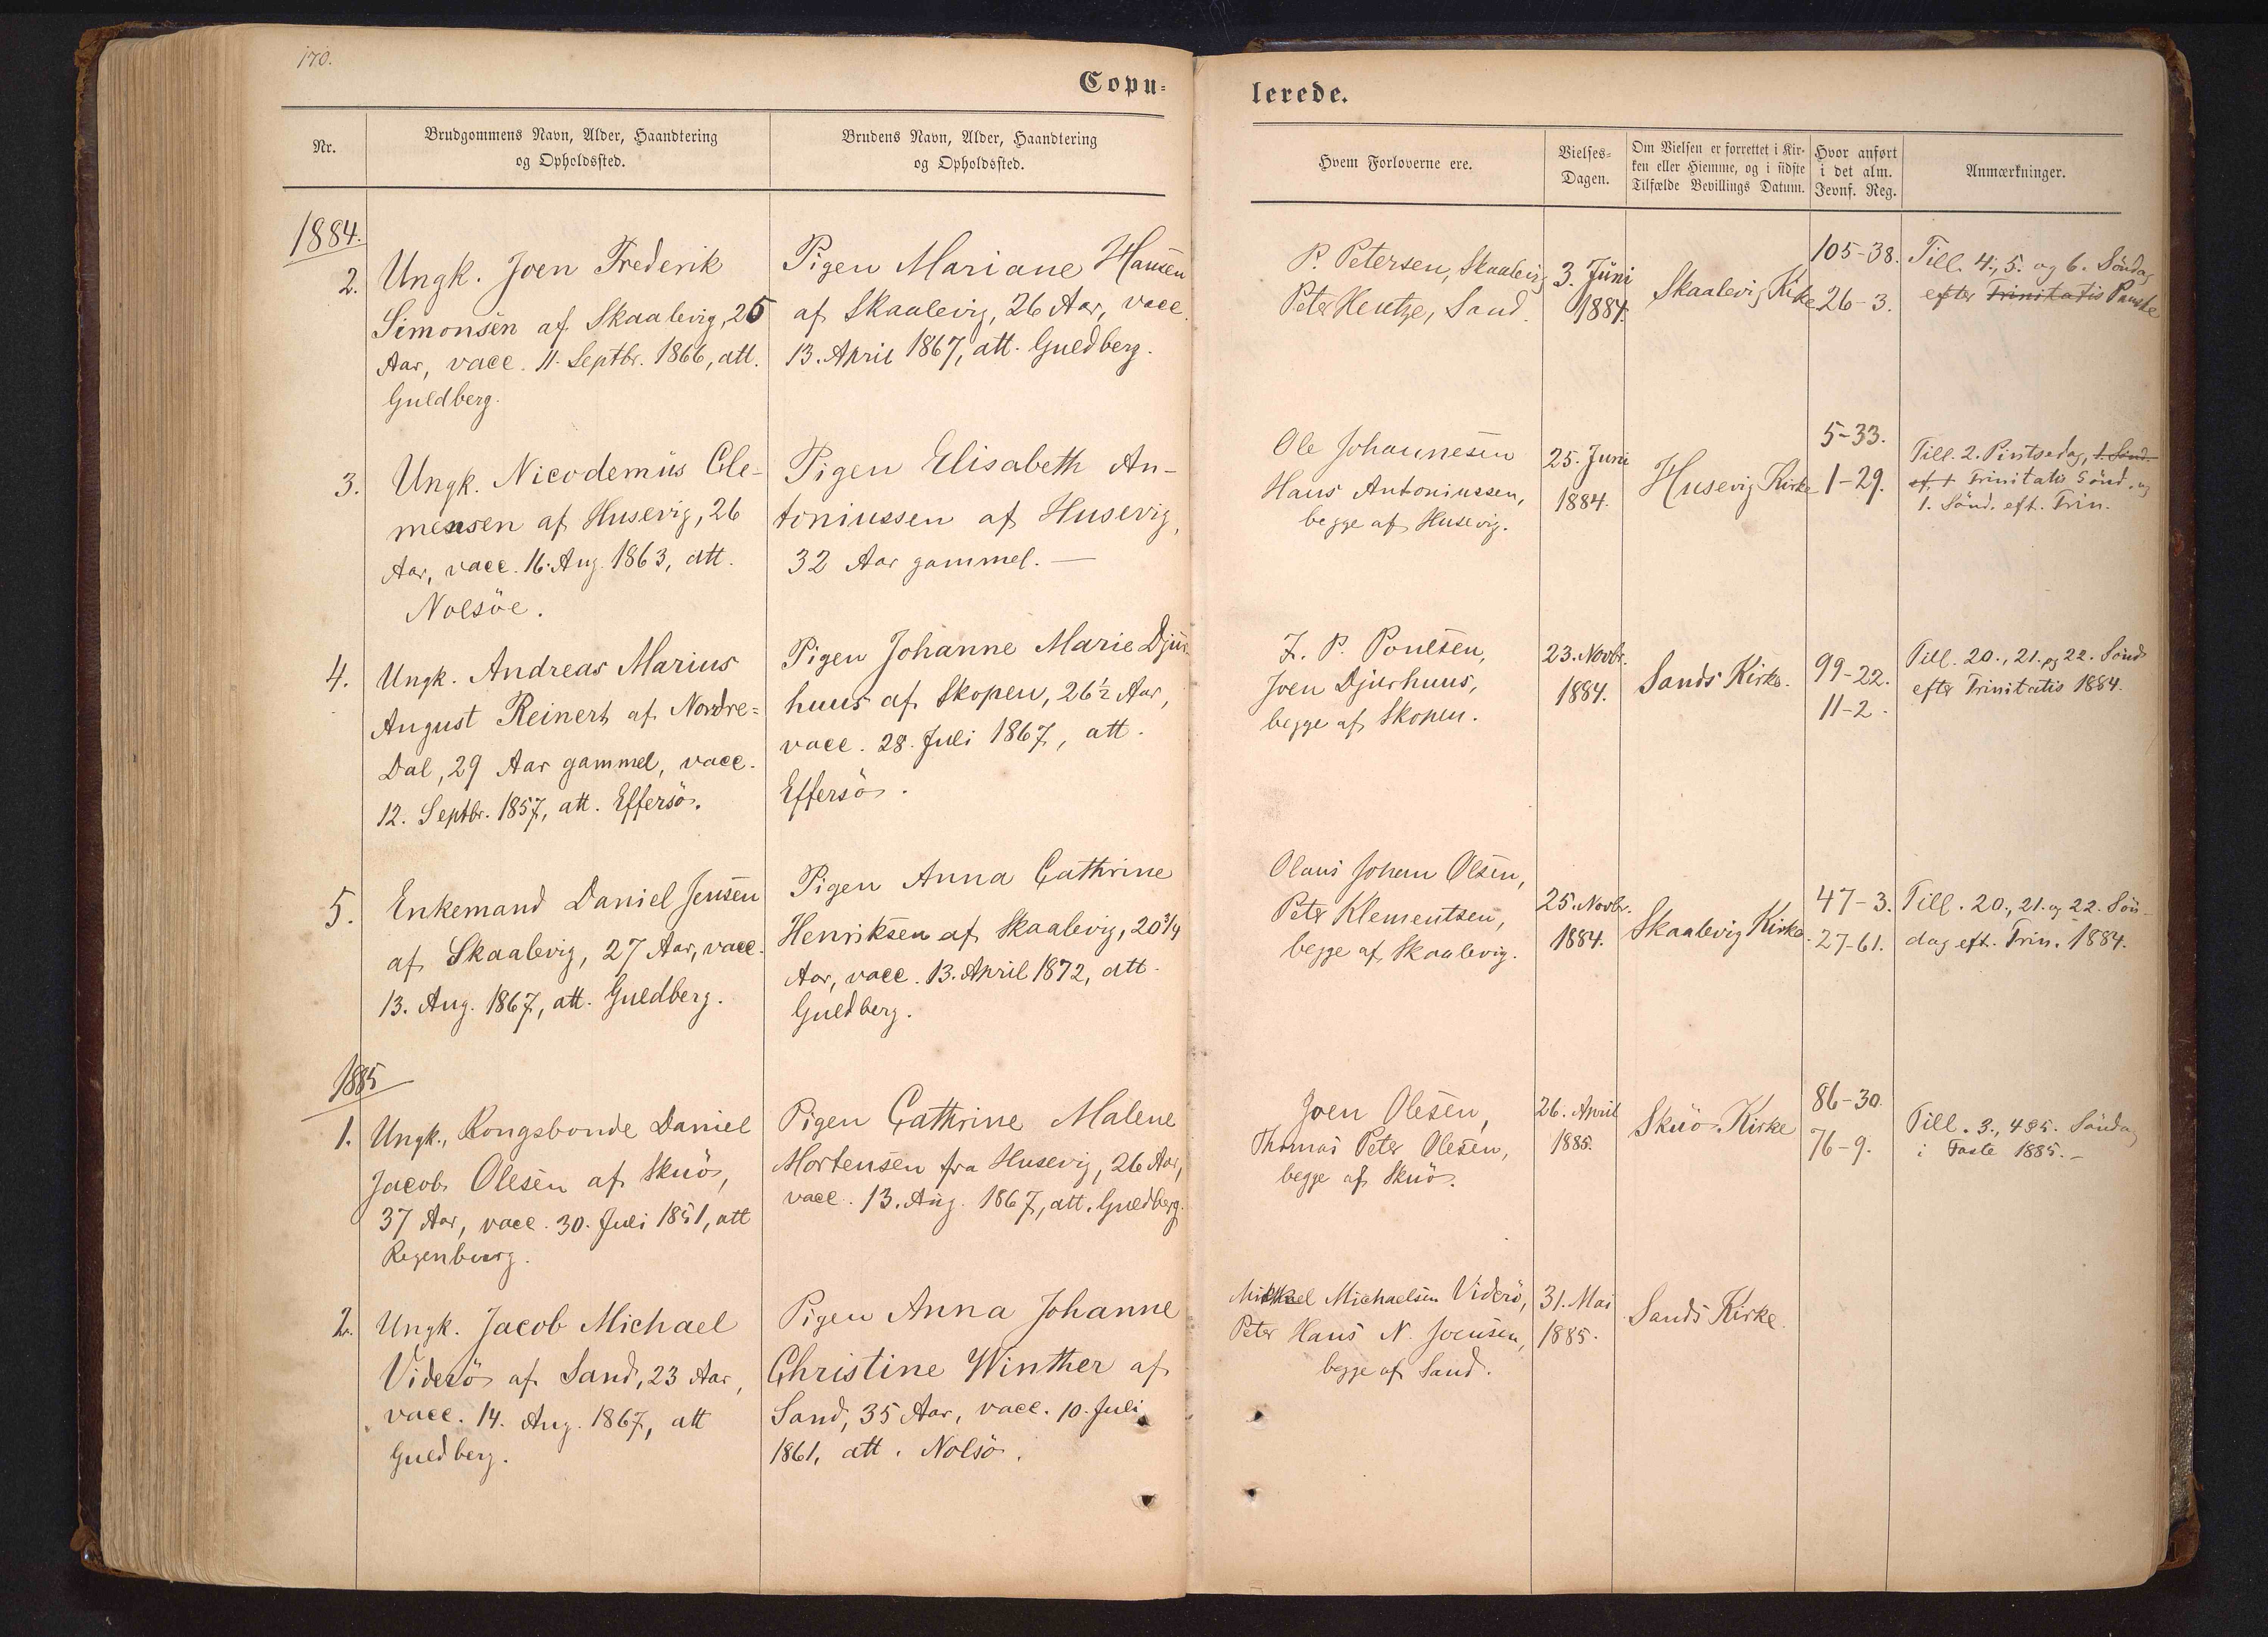 170.
Copu=
lerede.
Nr.
Brudgommens Navn, Alder, Haandtering
og Opholdssted.
Brudens Navn, Alder, Haandtering
og Opholdssted.
Hvem Forloverne ere.
Vielses=
Dagen.
Om Vielsen er forrettet i Kir-
ken eller Hiemme, og i sidste
Tilfælde Bevillings Datum.
Hvor anført
i det alm.
Jevnf. Reg.
Anmærkninger.
1884.
2.
Ungk. Joen Frederik
Simonsen af Skaalevig, 25
Aar, vacc. 11. Septbr. 1866, att.
Guldberg.
Pigen Mariane Hansen
af Skaalevig, 26 Aar, vacc.
13. April 1867, att. Guldberg.
P. Petersen, Skaalevig
Peter Hentze, Sand.
3. Juni
1884.
Skaalevig Kirke
105-38.
26-3.
Till. 4., 5. og 6. Söndag
efter Trinitatis Paaske
3.
Ungk. Nicodemus Cle-
mensen af Husevig, 26
Aar, vacc. 16. Aug. 1863, att.
Nolsöe.
Pigen Elisabeth An-
toniussen af Husevig,
32 Aar gammel. —
Ole Johannesen
Hans Antoniussen,
begge af Husevig.
25. Juni
1884.
Husevig Kirke
5-33.
1-29.
Till. 2. Pintsedag, 1. Sönd.
ef. t Trinitatis Sönd. og
1. Sönd. eft. Trin.
4.
Ungk. Andreas Marius
August Reinert af Nordre=
Dal, 29 Aar gammel, vacc.
12. Septbr. 1857, att. Effersö.
Pigen Johanne Marie Djur-
huus af Skopen, 26½ Aar,
vacc. 28. Juli 1867, att.
Effersö.
Z. P. Poulsen,
Joen Djurhuus,
begge af Skopen.
23. Novbr.
1884.
Sands Kirke.
99-22.
11-2.
Till. 20., 21. og 22. Sönd
efter Trinitatis 1884.
5.
Enkemand Daniel Jensen
af Skaalevig, 27 Aar, vacc.
13. Aug. 1867, att. Guldberg.
Pigen Anna Cathrine
Henriksen af Skaalevig, 20¾
Aar, vacc. 13. April 1872, att.
Guldberg.
Olaus Johan Olsen,
Peter Klementsen,
begge af Skaalevig.
25. Novbr.
1884.
Skaalevig Kirke.
47-3.
27-61.
Till. 20., 21. og 22. Sön-
dag eft. Trin. 1884.
1885
1.
Ungk., Kongsbonde Daniel
Jacob Olesen af Skuö,
37 Aar, vacc. 30. Juli 1851, att
Regenburg.
Pigen Cathrine Malene
Mortensen fra Husevig, 26 Aar,
vacc. 13. Aug. 1867, att. Guldberg.
Joen Olesen,
Thomas Peter Olesen,
begge af Skuö.
26. April
1885.
Skuö Kirke
86-30.
76-9.
Till. 3., 4 & 5. Söndag
i Faste 1885. —
2.
Ungk. Jacob Michael
Viderö af Sand, 23 Aar,
vacc. 14. Aug. 1867, att
Guldberg.
Pigen Anna Johanne
Christine Winther af
Sand, 35 Aar, vacc. 10. Juli
1861, att. Nolsö.
Mikkel Michaelsen Viderö,
Peter Hans N. Joensen,
begge af Sand.
31. Mai
1885.
Sands Kirke.